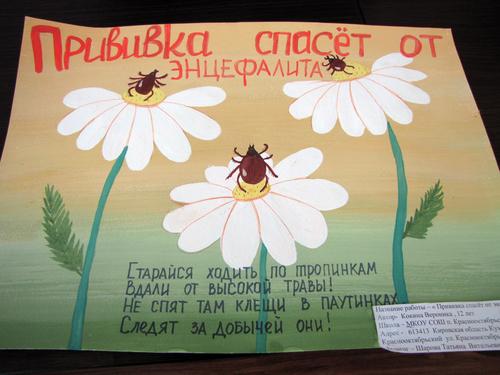 Прививка спасёт от
энцефалита
Старайся ходить по тропинкам
Вдали от высокой травы!
Не спят там клещи в паутинках
Следят за добычей они!
Название работы – « Прививка спасёт от
Автор- Кокина Вероника , 12 лет
Школа – МКОУ СОШ п. Краснооктябрьс
Адрес - 613413 Кировская область Ку
Краснооктябрьский ул. Краснооктябрь
– Шарова Татьяна Витальев